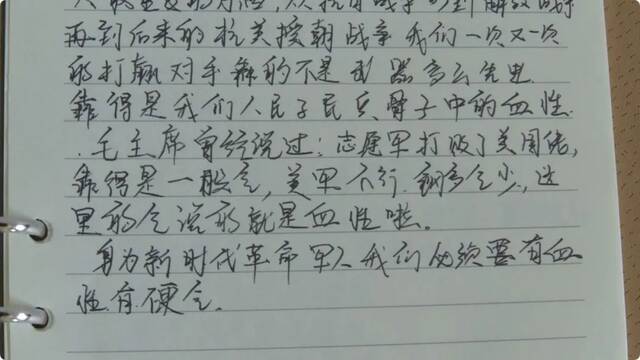 从抗日战争到解放战争
再到后来的抗美援朝战争我们一次又一次
的打赢对手靠的不是武器多么先进
靠得是我们人民子民兵骨子中的血性.
.毛主席曾经说过:志愿军打败了美国佬,
靠得是一股气,美军不行.钢多气少,这
里的气说的就是血性啦.
身为新时代革命军人我们必须要有血
性有硬气.